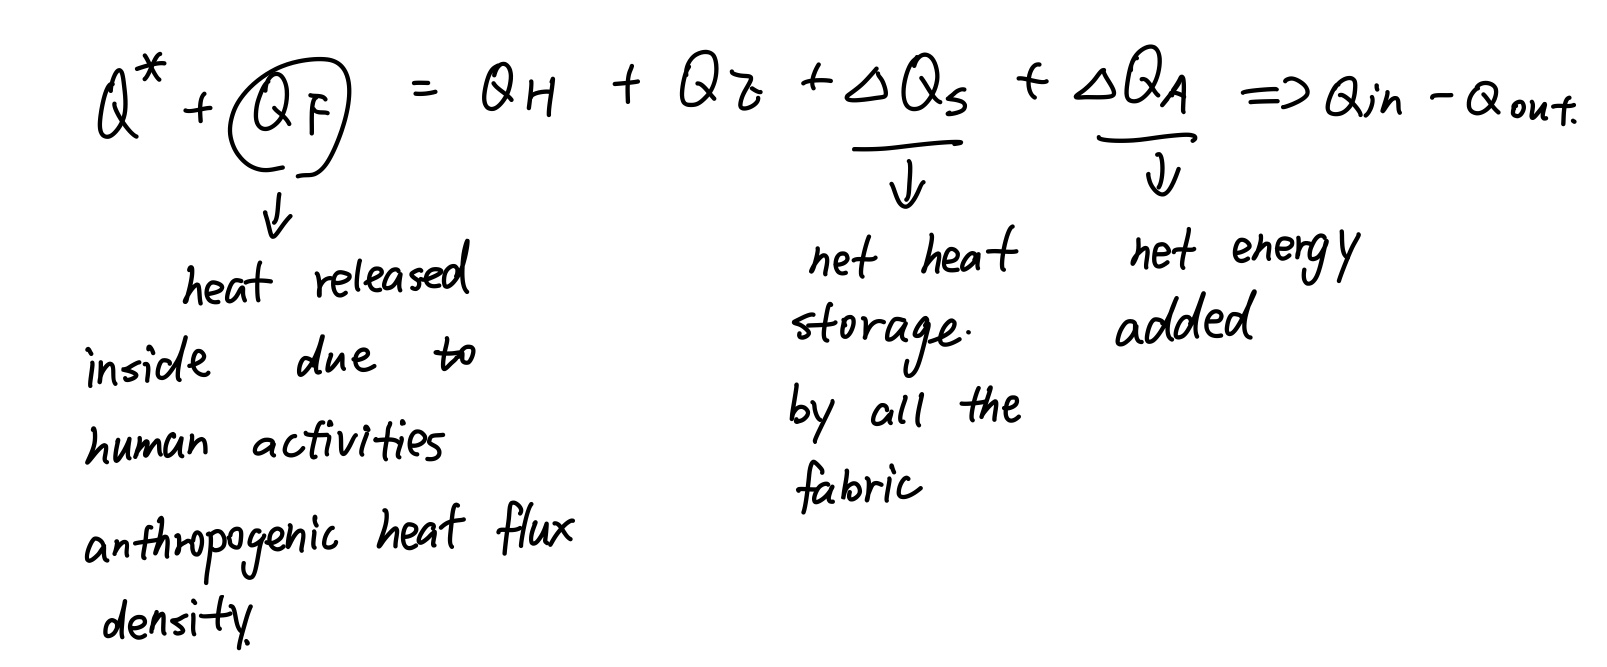 Q* + Q_F = Q_H + Q_E + ΔQ_S + ΔQ_A ⇒ Qin - Qout.
heat released
inside due to
human activities
anthropogenic heat flux
density.
net heat
storage.
by all the
fabric
net energy
added